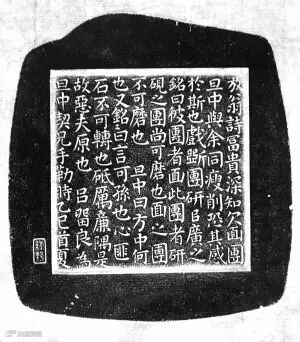 放翁詩富貴深知欠面團
旦中與余同瘦削恐其感
於斯也戲斲團研㠯廣之
銘曰彼團者面此團者研
硯之團尚可磨也面之團
不可磨也 旦中曰方中何
也又銘曰言可孫也心匪
石不可轉也砥厲廉隅是
故惡夫原也 呂留良為
旦中契兄手勒時乙巳首夏